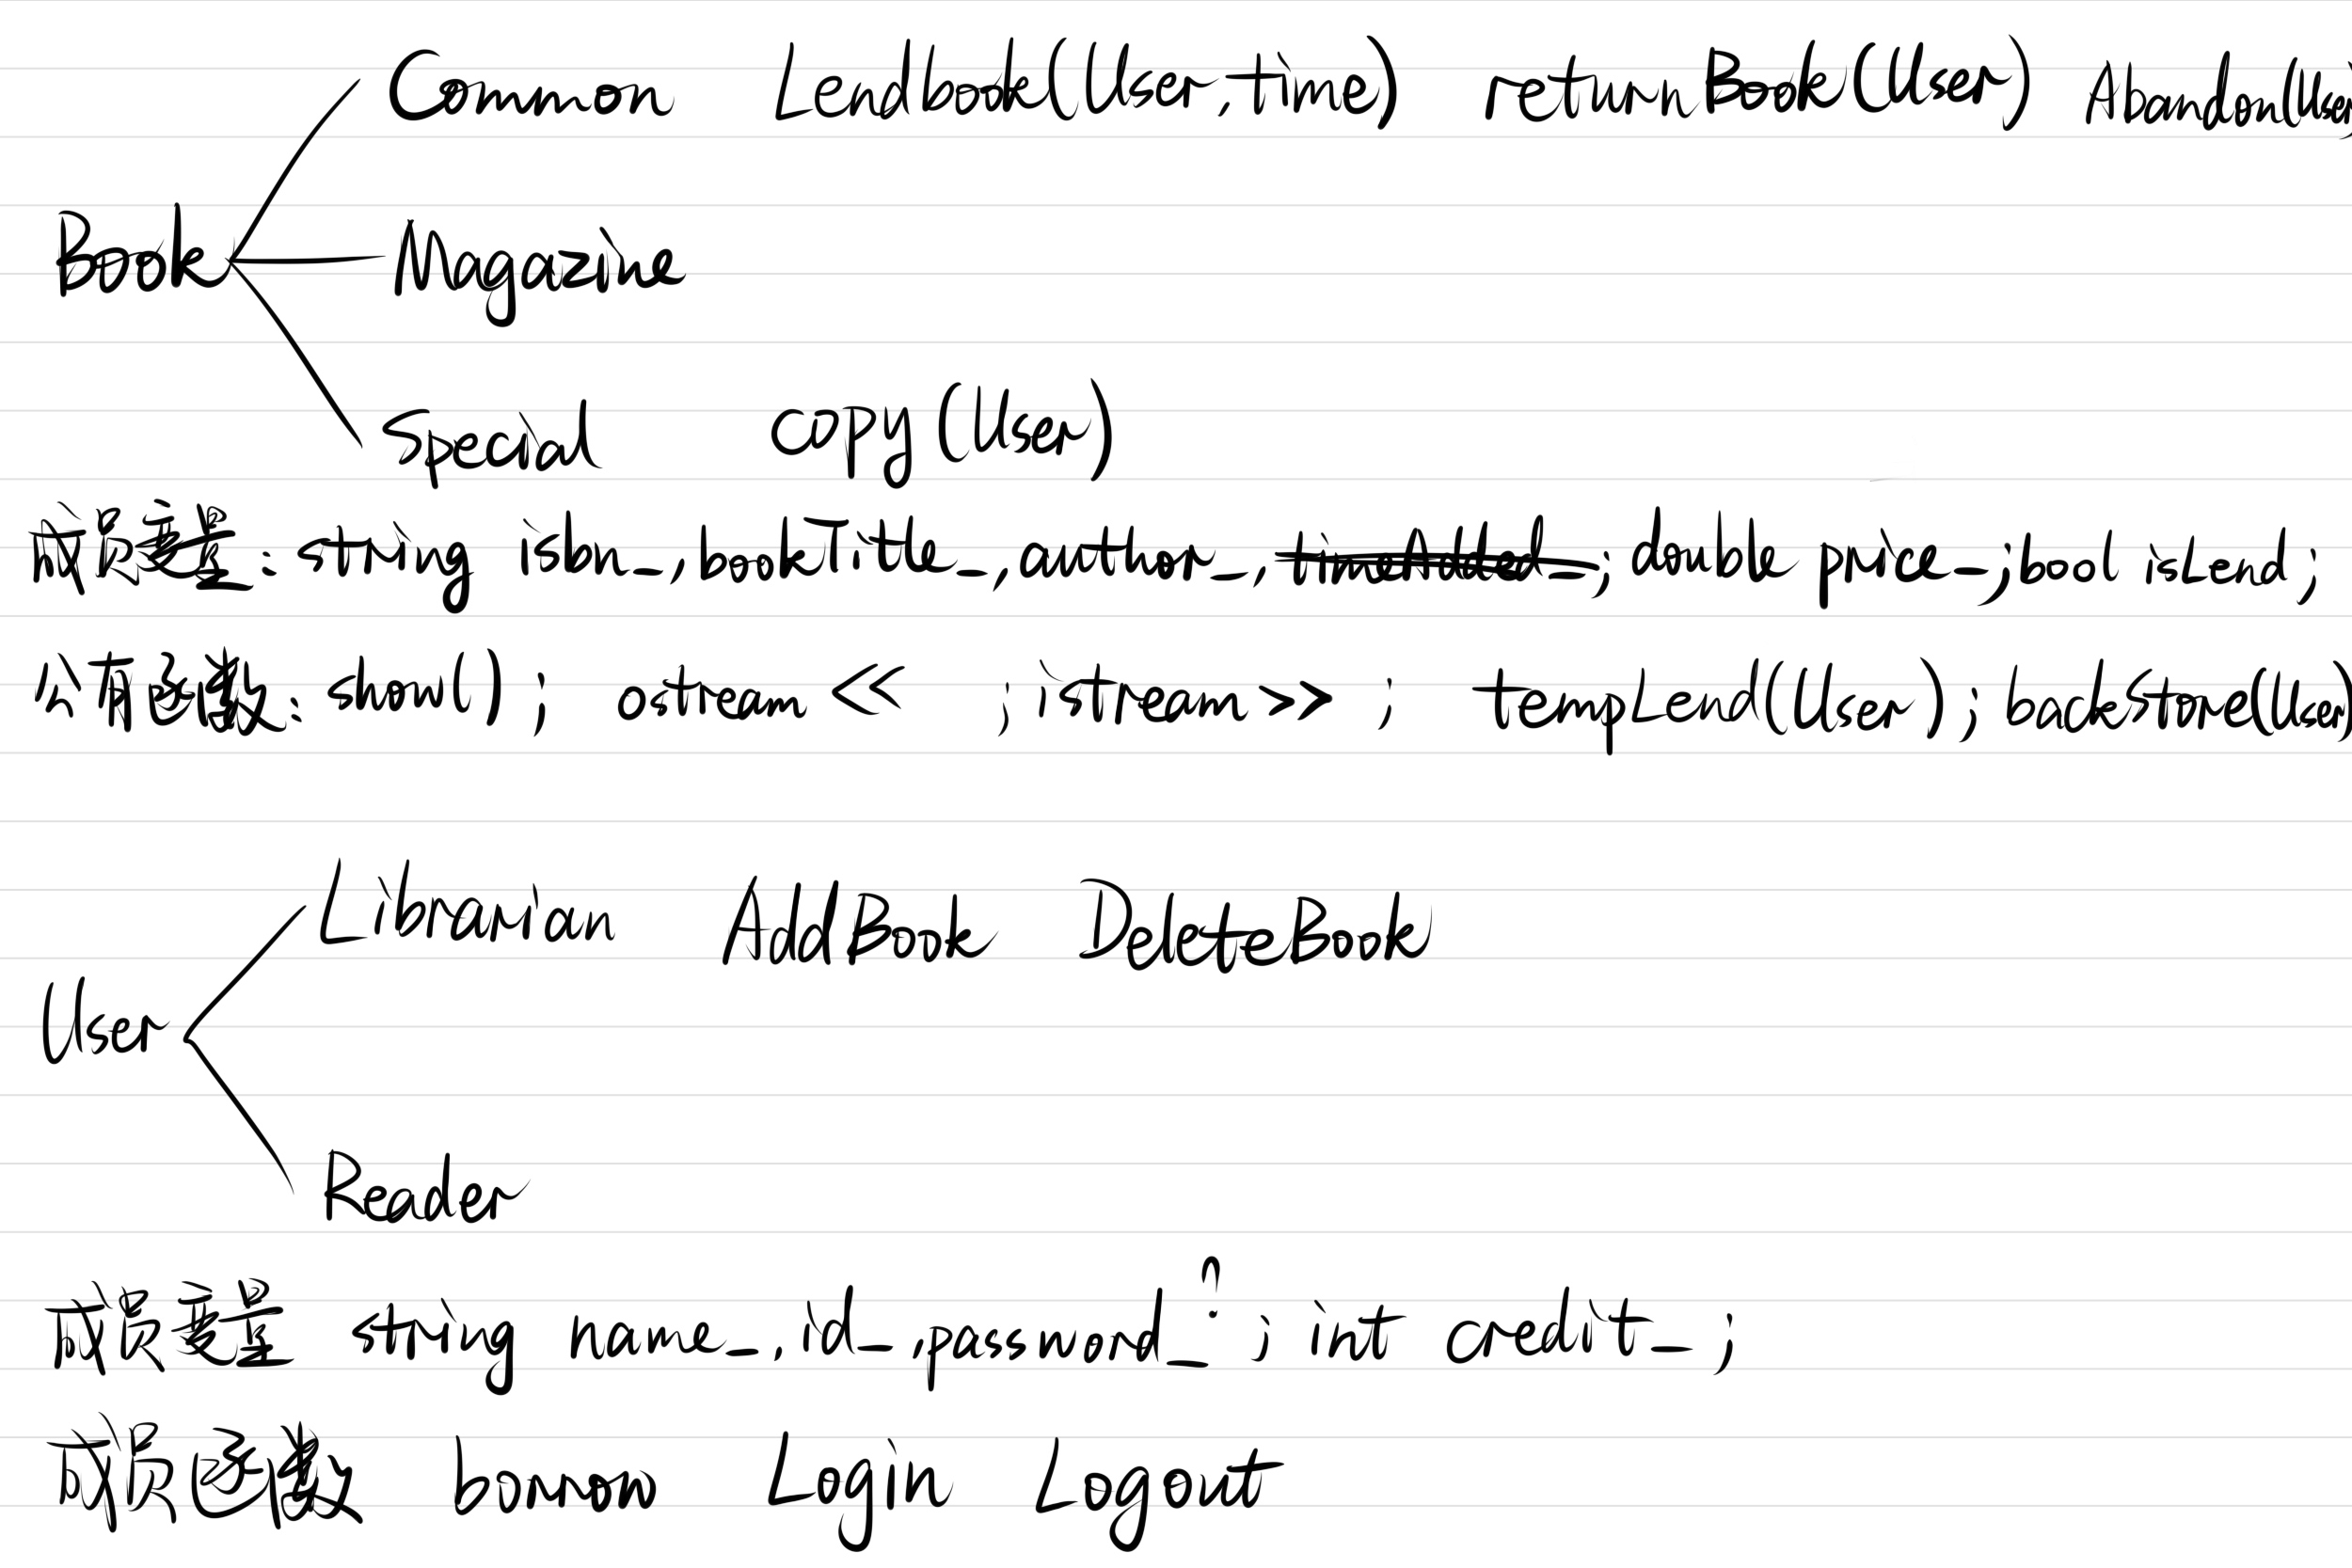 Common Lendbook(User,time) returnBook(User) Abandon(User)
Book Magazine
Special copy(User)
成员变量: string isbn_, bookTitle_, author_, ; double price_; bool isLend;
公有函数: show(); ostream << ; istream >> ; tempLend(User); backstore(User)
Librarian AddBook DeleteBook
User
Reader
成员变量 string name_, id_, password_? ; int credit_;
成员函数 borrow Login Logout